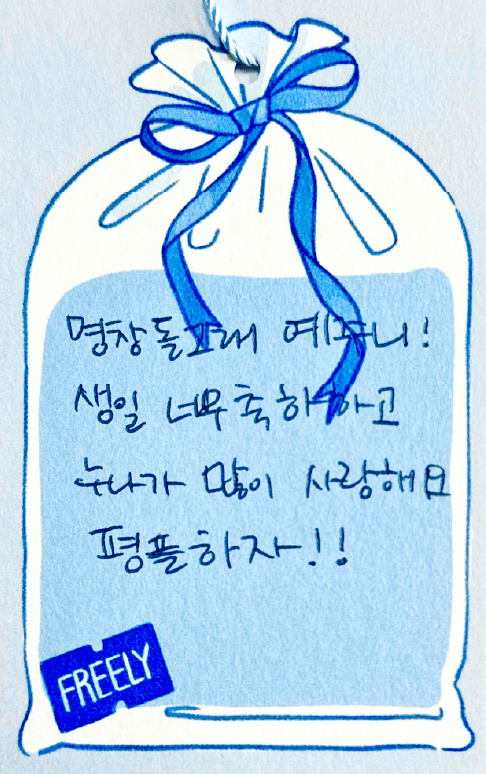 명창돌고래 예주니!
생일 너무 축하하고
누나가 많이 사랑해요
평플하자!!
FREELY